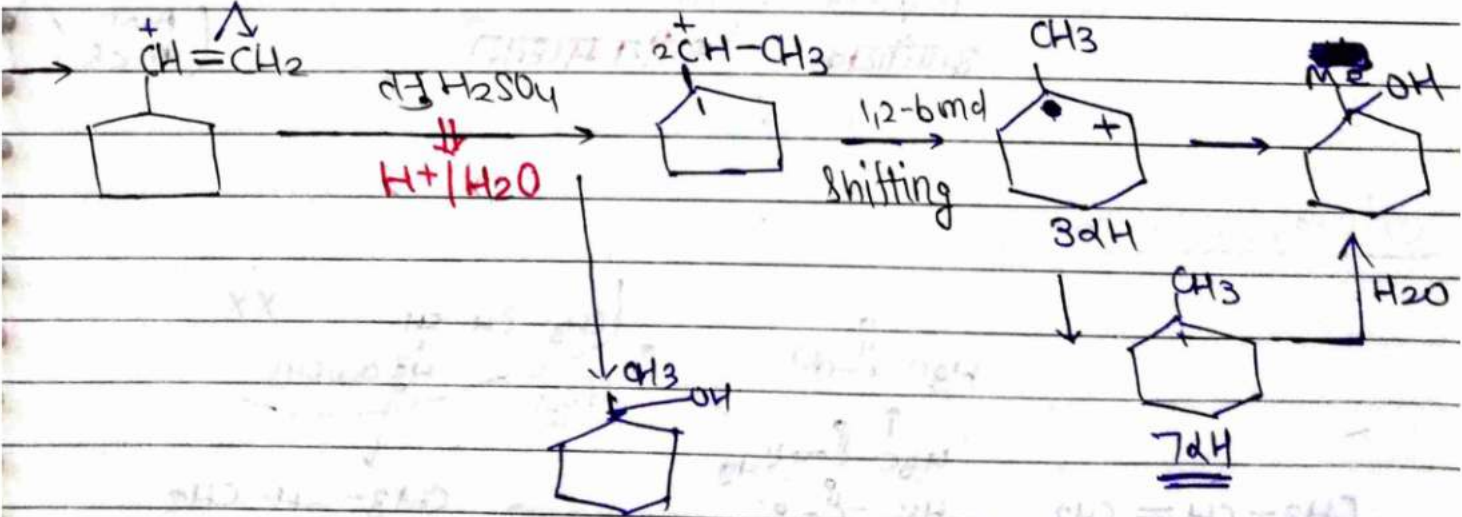 +CH=CH2
तनु H2SO4
H+/H2O
2 +CH-CH3
1,2-bond
Shifting
CH3
+
3αH
Me OH
CH3
+
7αH
H2O
CH3
OH